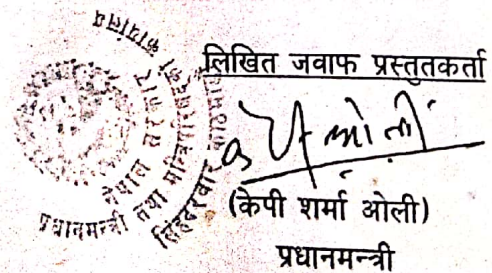 लिखित जवाफ प्रस्तुतकर्ता
(केपी शर्मा ओली)
प्रधानमन्त्री
नेपाल सरकार
प्रधानमन्त्री तथा मन्त्रिपरिषद्को
कार्यालय
सिंहदरबार